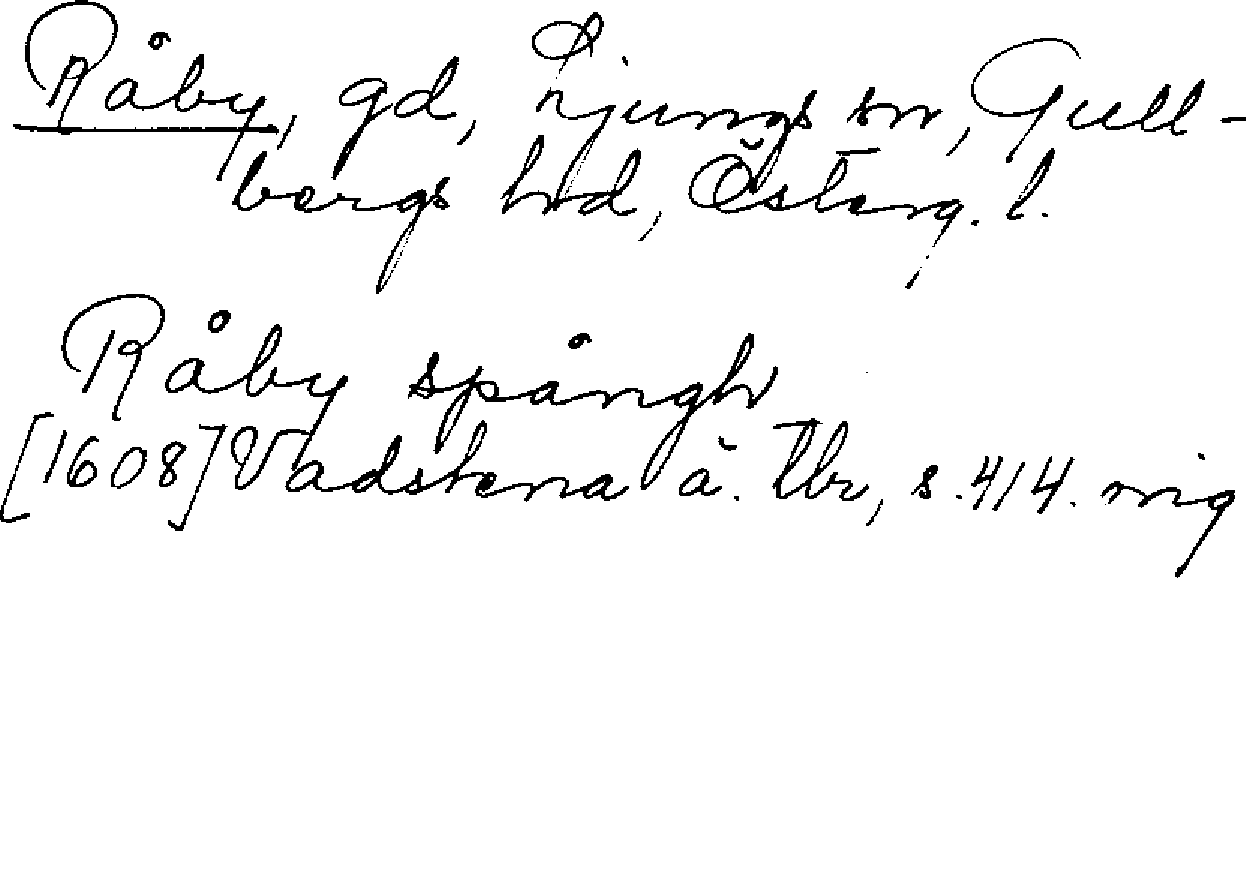 Råby, gd, Ljungs sn, Gull-
bergs hd, Österg. l.
Råby spångh
[1608] Vadstena ä. tbr, s. 414. mig